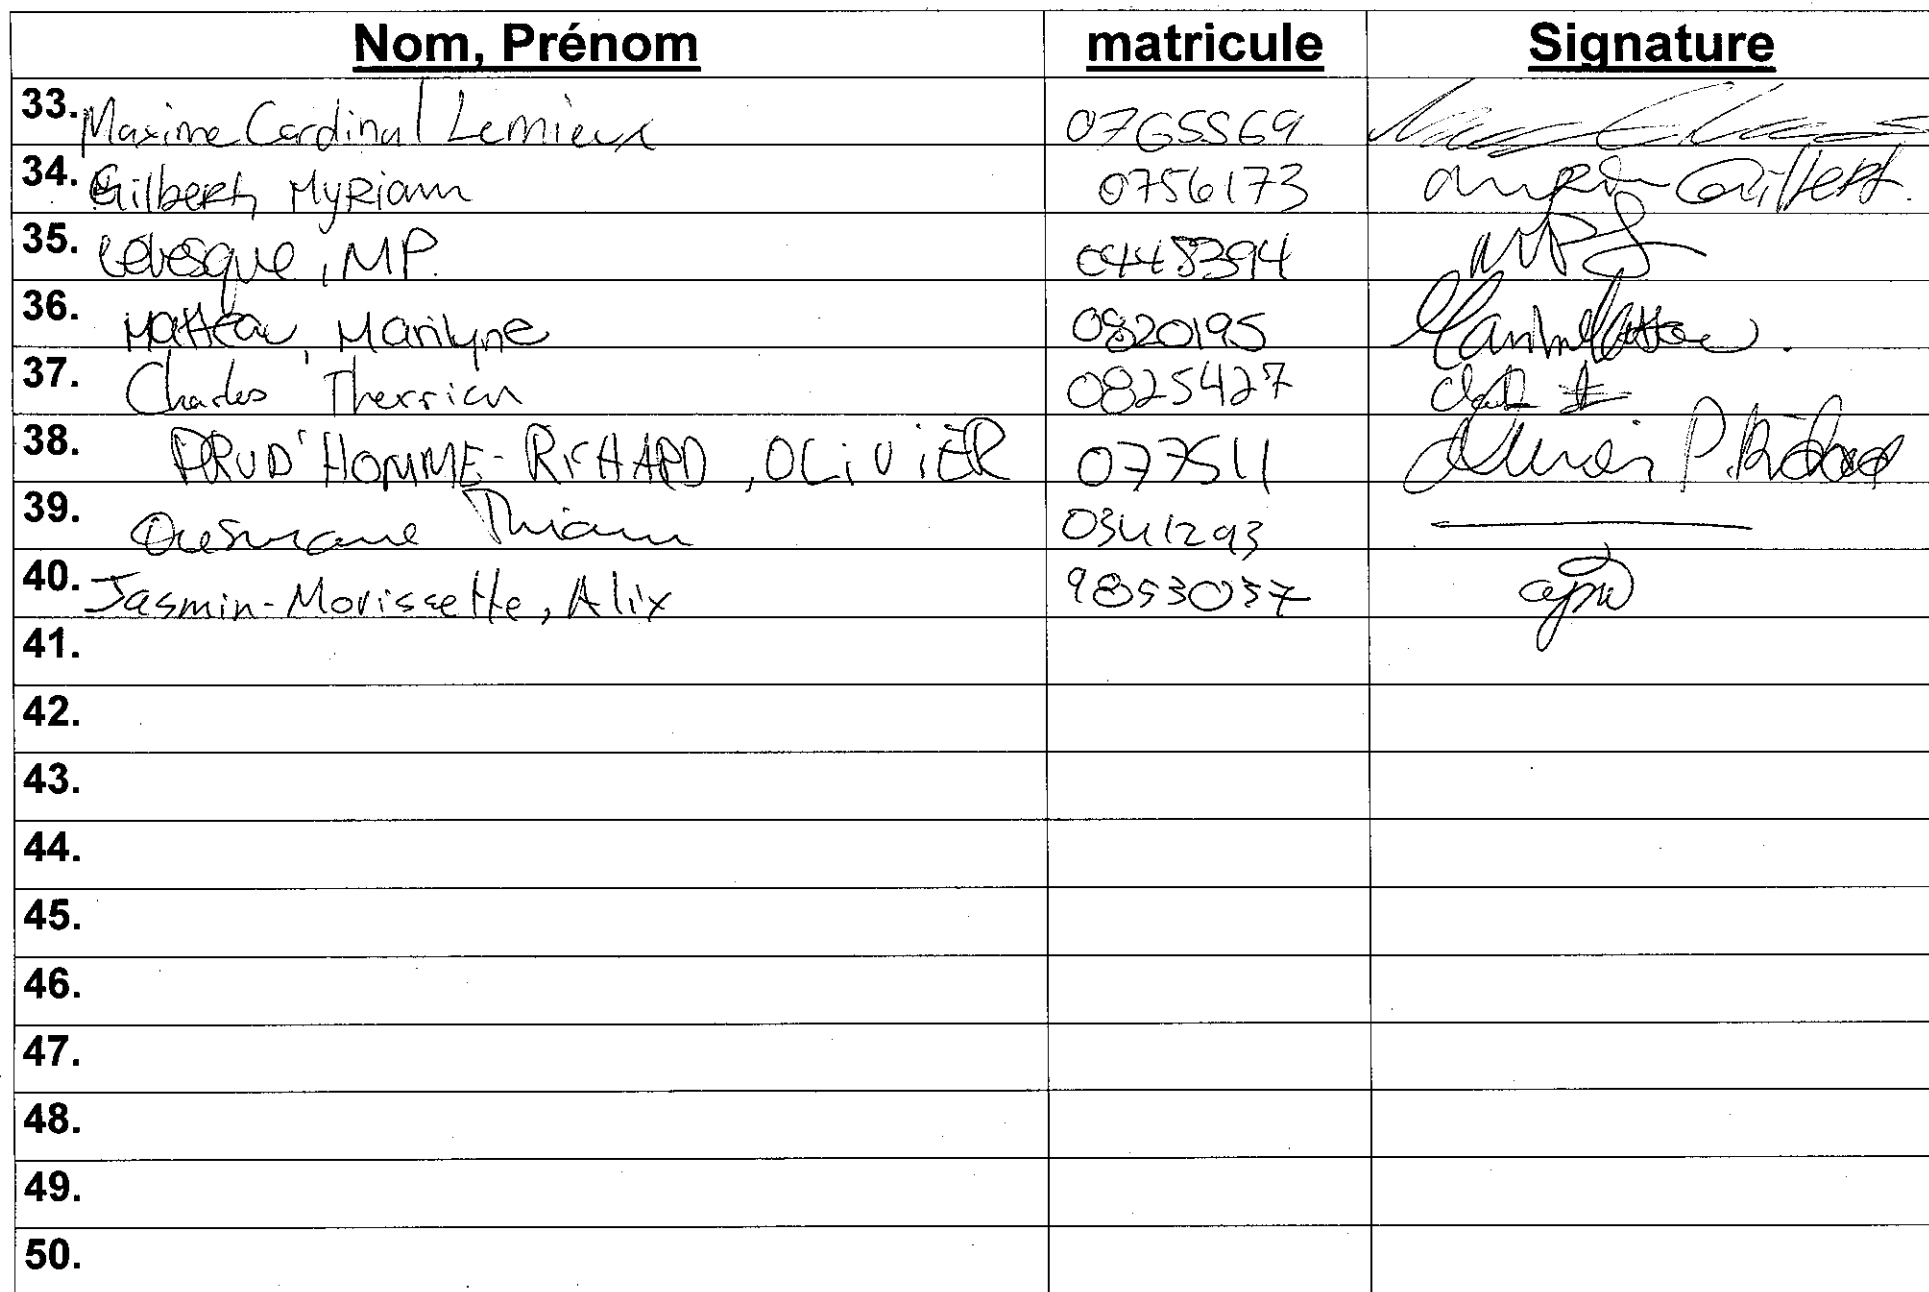 Nom, Prénom matricule Signature
33. Maxime Cardinal Lemieux 0765569
34. Gilbert, Myriam 0756173 Gilbert.
35. Levesque, MP. 0448394 MPL
36. Matteau, Marilyne 0820195
37. Charles Therrien 0825427
38. PRUD'HOMME-RICHARD, OLiViER 077511 Olivier P. Richard
39. Ousmane Thiam 0341293
40. Jasmin-Morissette, Alix 9853037 ajm
41.
42.
43.
44.
45.
46.
47.
48.
49.
50.